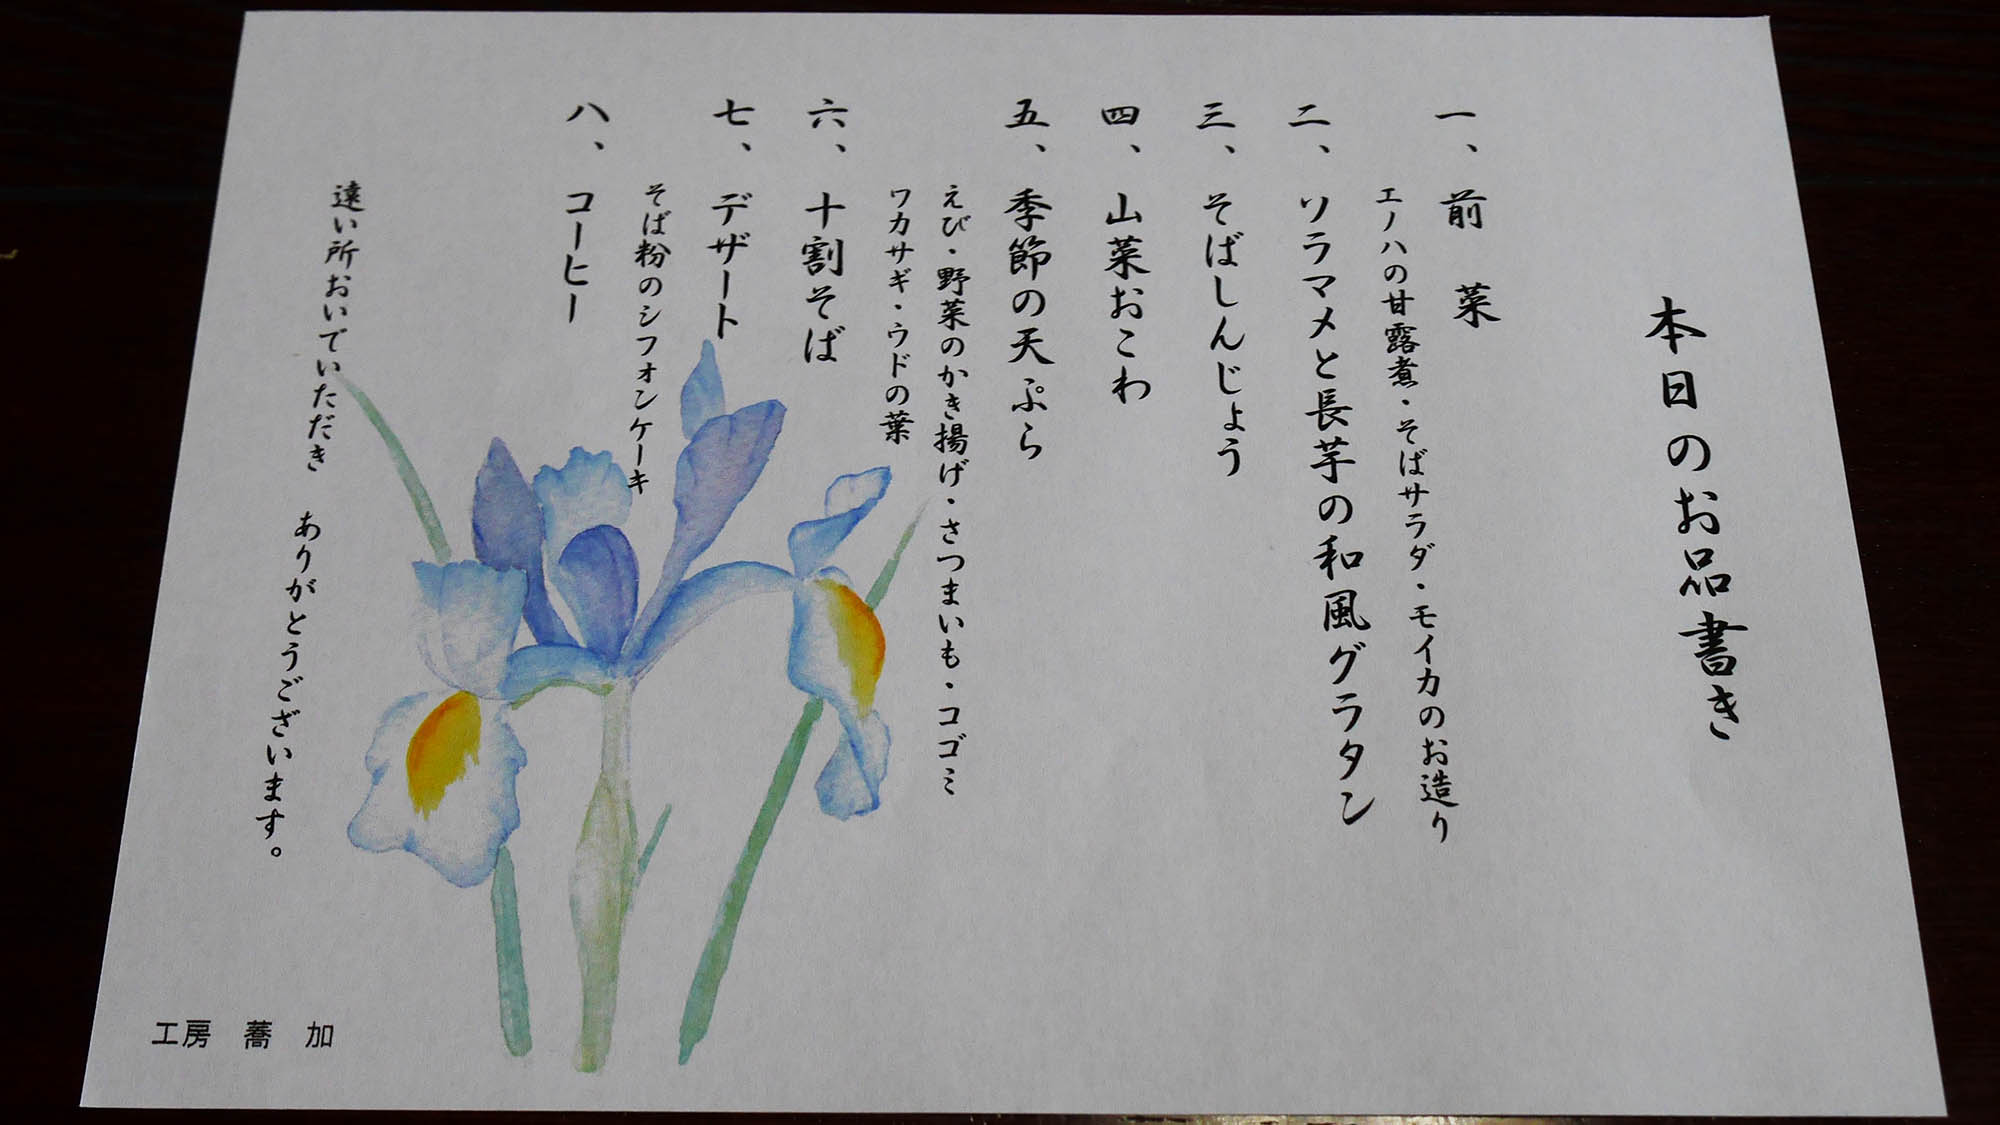 本日のお品書き
一、前　菜
エノハの甘露煮・そばサラダ・モイカのお造り
二、ソラマメと長芋の和風グラタン
三、そばしんじょう
四、山菜おこわ
五、季節の天ぷら
えび・野菜のかき揚げ・さつまいも・コゴミ
ワカサギ・ウドの葉
六、十割そば
七、デザート
そば粉のシフォンケーキ
八、コーヒー
遠い所おいでいただき　ありがとうございます。
工房　蕎　加